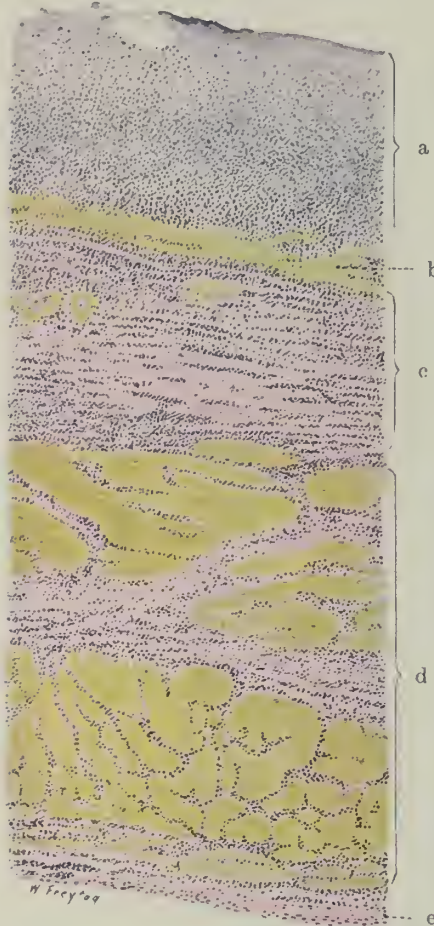 a
b
c
d
W Freytag
e